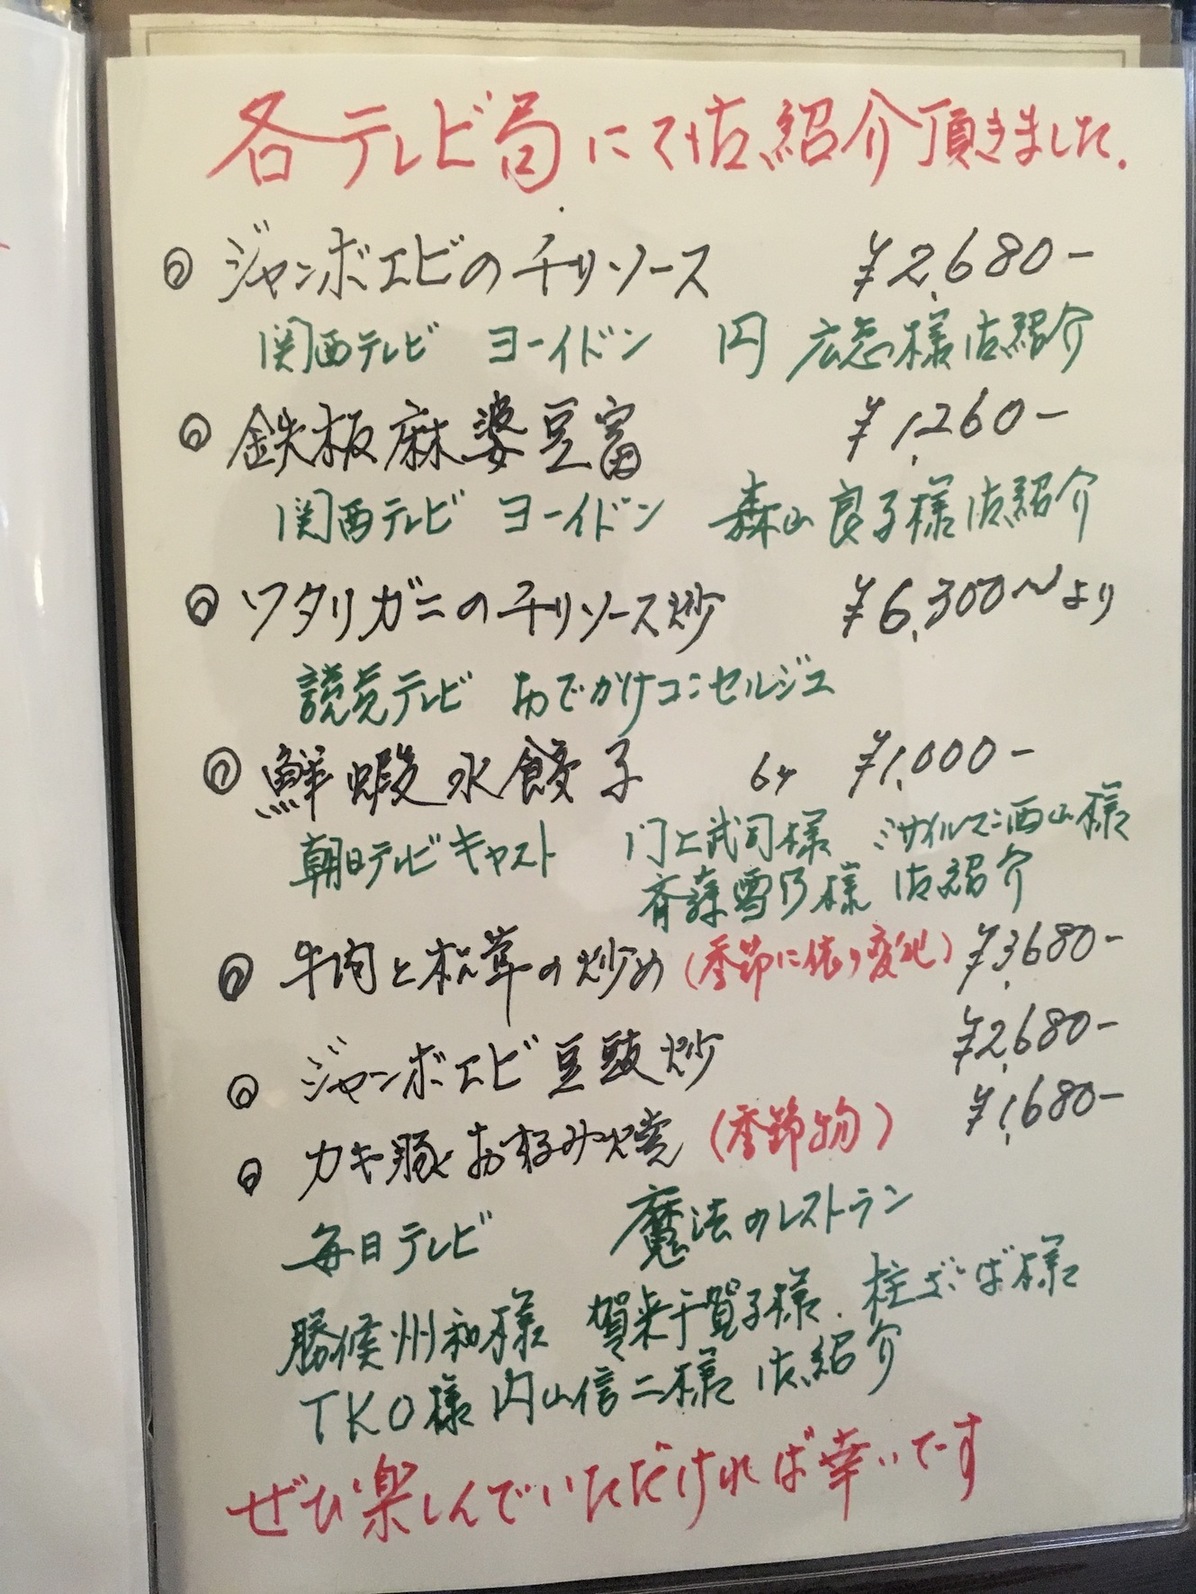 各テレビ局にて御紹介頂きました。
◎ ジャンボエビのチリソース ¥2,680-
関西テレビ ヨーイドン 円 広志様御紹介
◎ 鉄板麻婆豆富 ¥1,260-
関西テレビ ヨーイドン 森山良子様御紹介
◎ ワタリガニのチリソース炒 ¥6,300〜より
読売テレビ おでかけコンセルジュ
◎ 鮮蝦水餃子 6ヶ ¥1,000-
朝日テレビキャスト 門上武司様 ミサイルマン西山様
斉藤雪乃様 御紹介
◎ 牛肉と松茸の炒め (季節に依り変化) ¥3,680-
◎ ジャンボエビ豆豉炒 ¥2,680-
◎ カキ豚お好み焼 (季節物) ¥1,680-
毎日テレビ 魔法のレストラン
勝俣州和様 賀来千賀子様. 桂ざこば様
TKO様 内山信二様 御紹介
ぜひ楽しんでいただければ幸いです